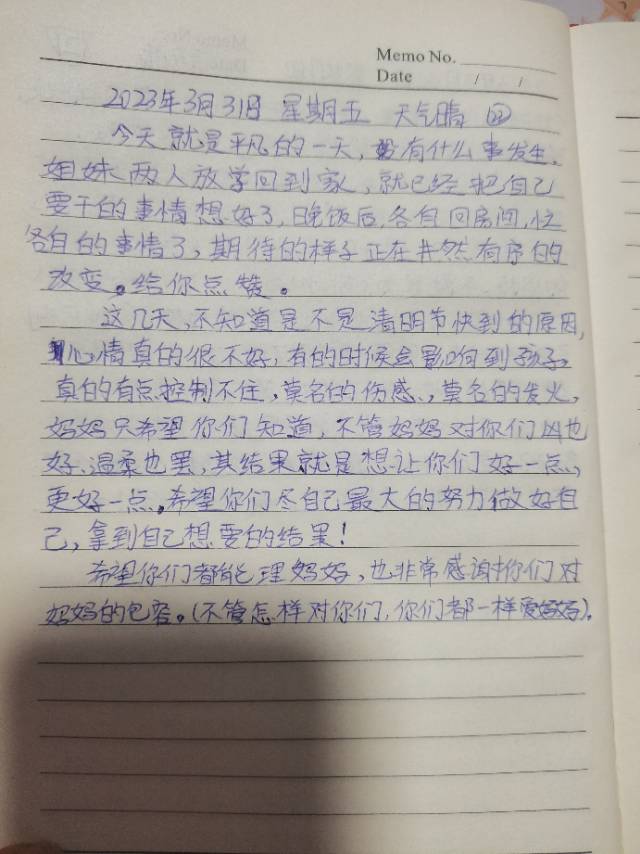 Memo No.
Date / /
2023年3月31日 星期五 天气晴
今天就是平凡的一天,没有什么事发生,
姐妹两人放学回到家,就已经把自己
要干的事情想好了,晚饭后,各自回房间,忙
各自的事情了,期待的样子正在井然有序的
改变。给你点赞。
这几天,不知道是不是清明节快到的原因,
心情真的很不好,有的时候会影响到孩子。
真的有点控制不住,莫名的伤感,莫名的发火,
妈妈只希望你们知道,不管妈妈对你们凶也
好,温柔也罢,其结果就是想让你们好一点,
更好一点,希望你们尽自己最大的努力做好自
己,拿到自己想要的结果!
希望你们都能理妈妈,也非常感谢你们对
妈妈的包容。(不管怎样对你们,你们都一样爱妈妈)。